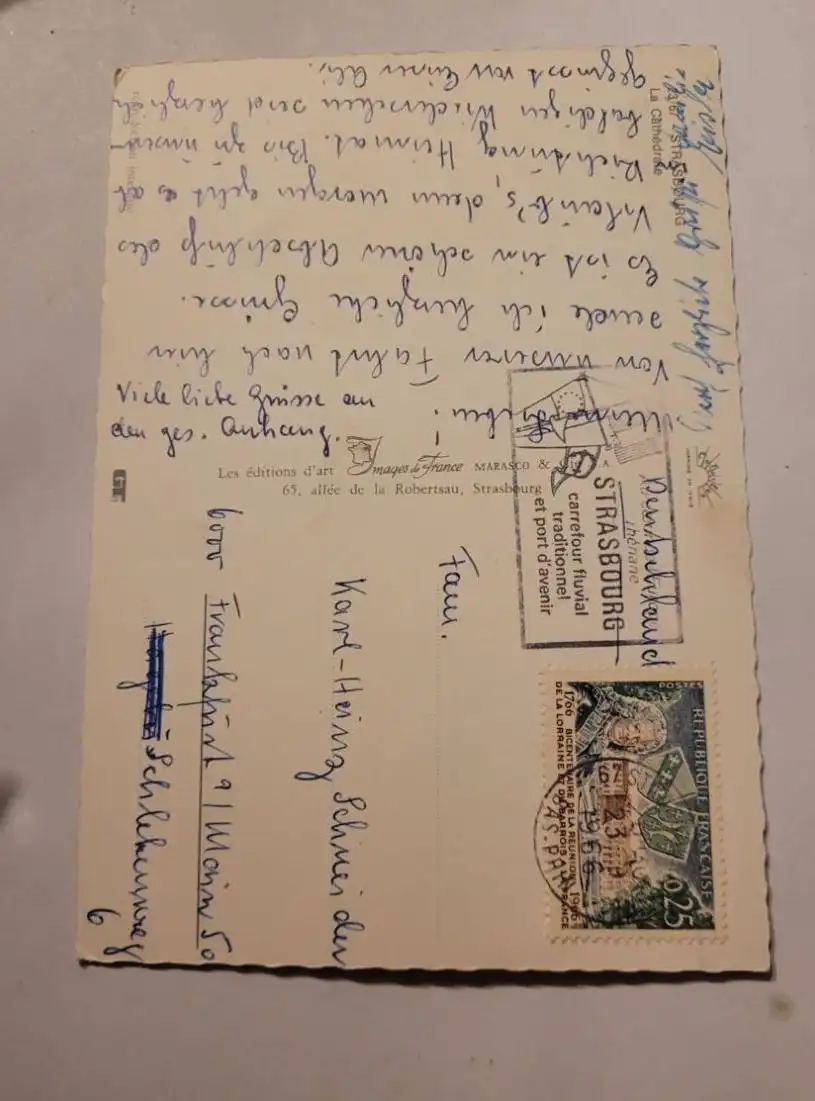 67 - STRASBOURG
La Cathédrale
Meine Lieben!
Von unserer Fahrt nach hier
sende ich herzliche Grüsse.
Es ist ein schöner Abschluß des
Urlaub's, denn morgen geht es ab
Richtung Heimat. Bis zu unserem
baldigen Wiedersehen seid herzlich
gegrüsst von Eurer
Viele liebe Grüsse an
den ges. Anhang.
Les éditions d'art Images de France MARASCO &
65, allée de la Robertsau, Strasbourg
STRASBOURG
carrefour fluvial
traditionnel
et port d'avenir
rhénane
Deutschland
REPUBLIQUE FRANÇAISE
POSTES
0,25
1766 BICENTENAIRE DE LA REUNION 1966
DE LA LORRAINE ET DU BARROIS A LA FRANCE
23
1966
Fam.
Karl-Heinz Schneider
6000 Frankfurt 9/Main 50
6